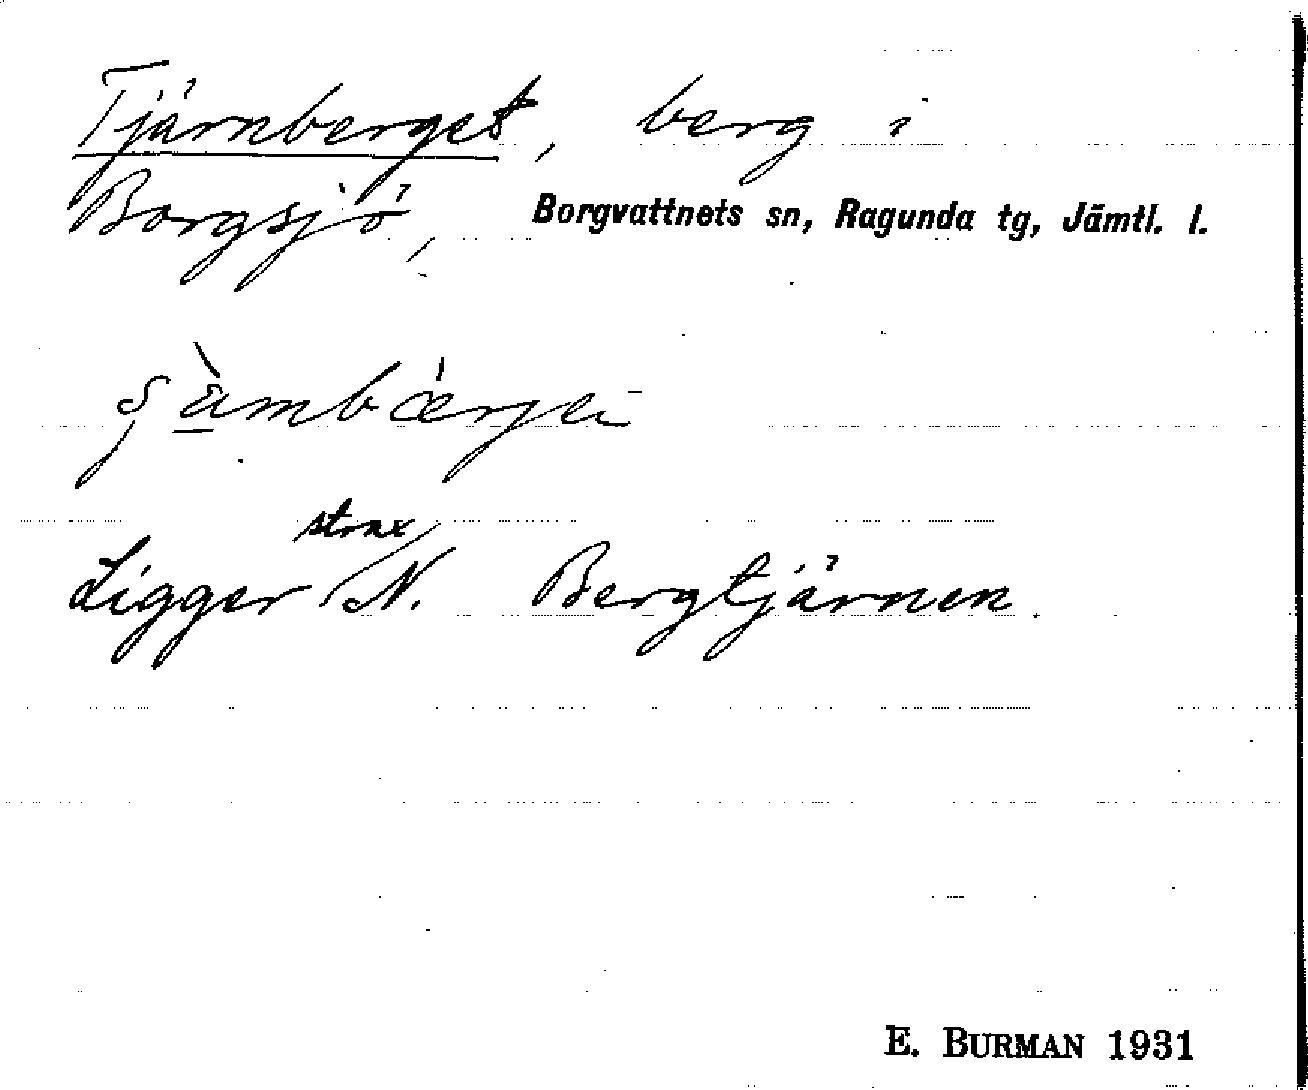 Tjärnberget, berg i
Borgsjö, Borgvattnets sn, Ragunda tg, Jämtl. l.
strax
Ligger N. Bergtjärnen.
E. BURMAN 1931